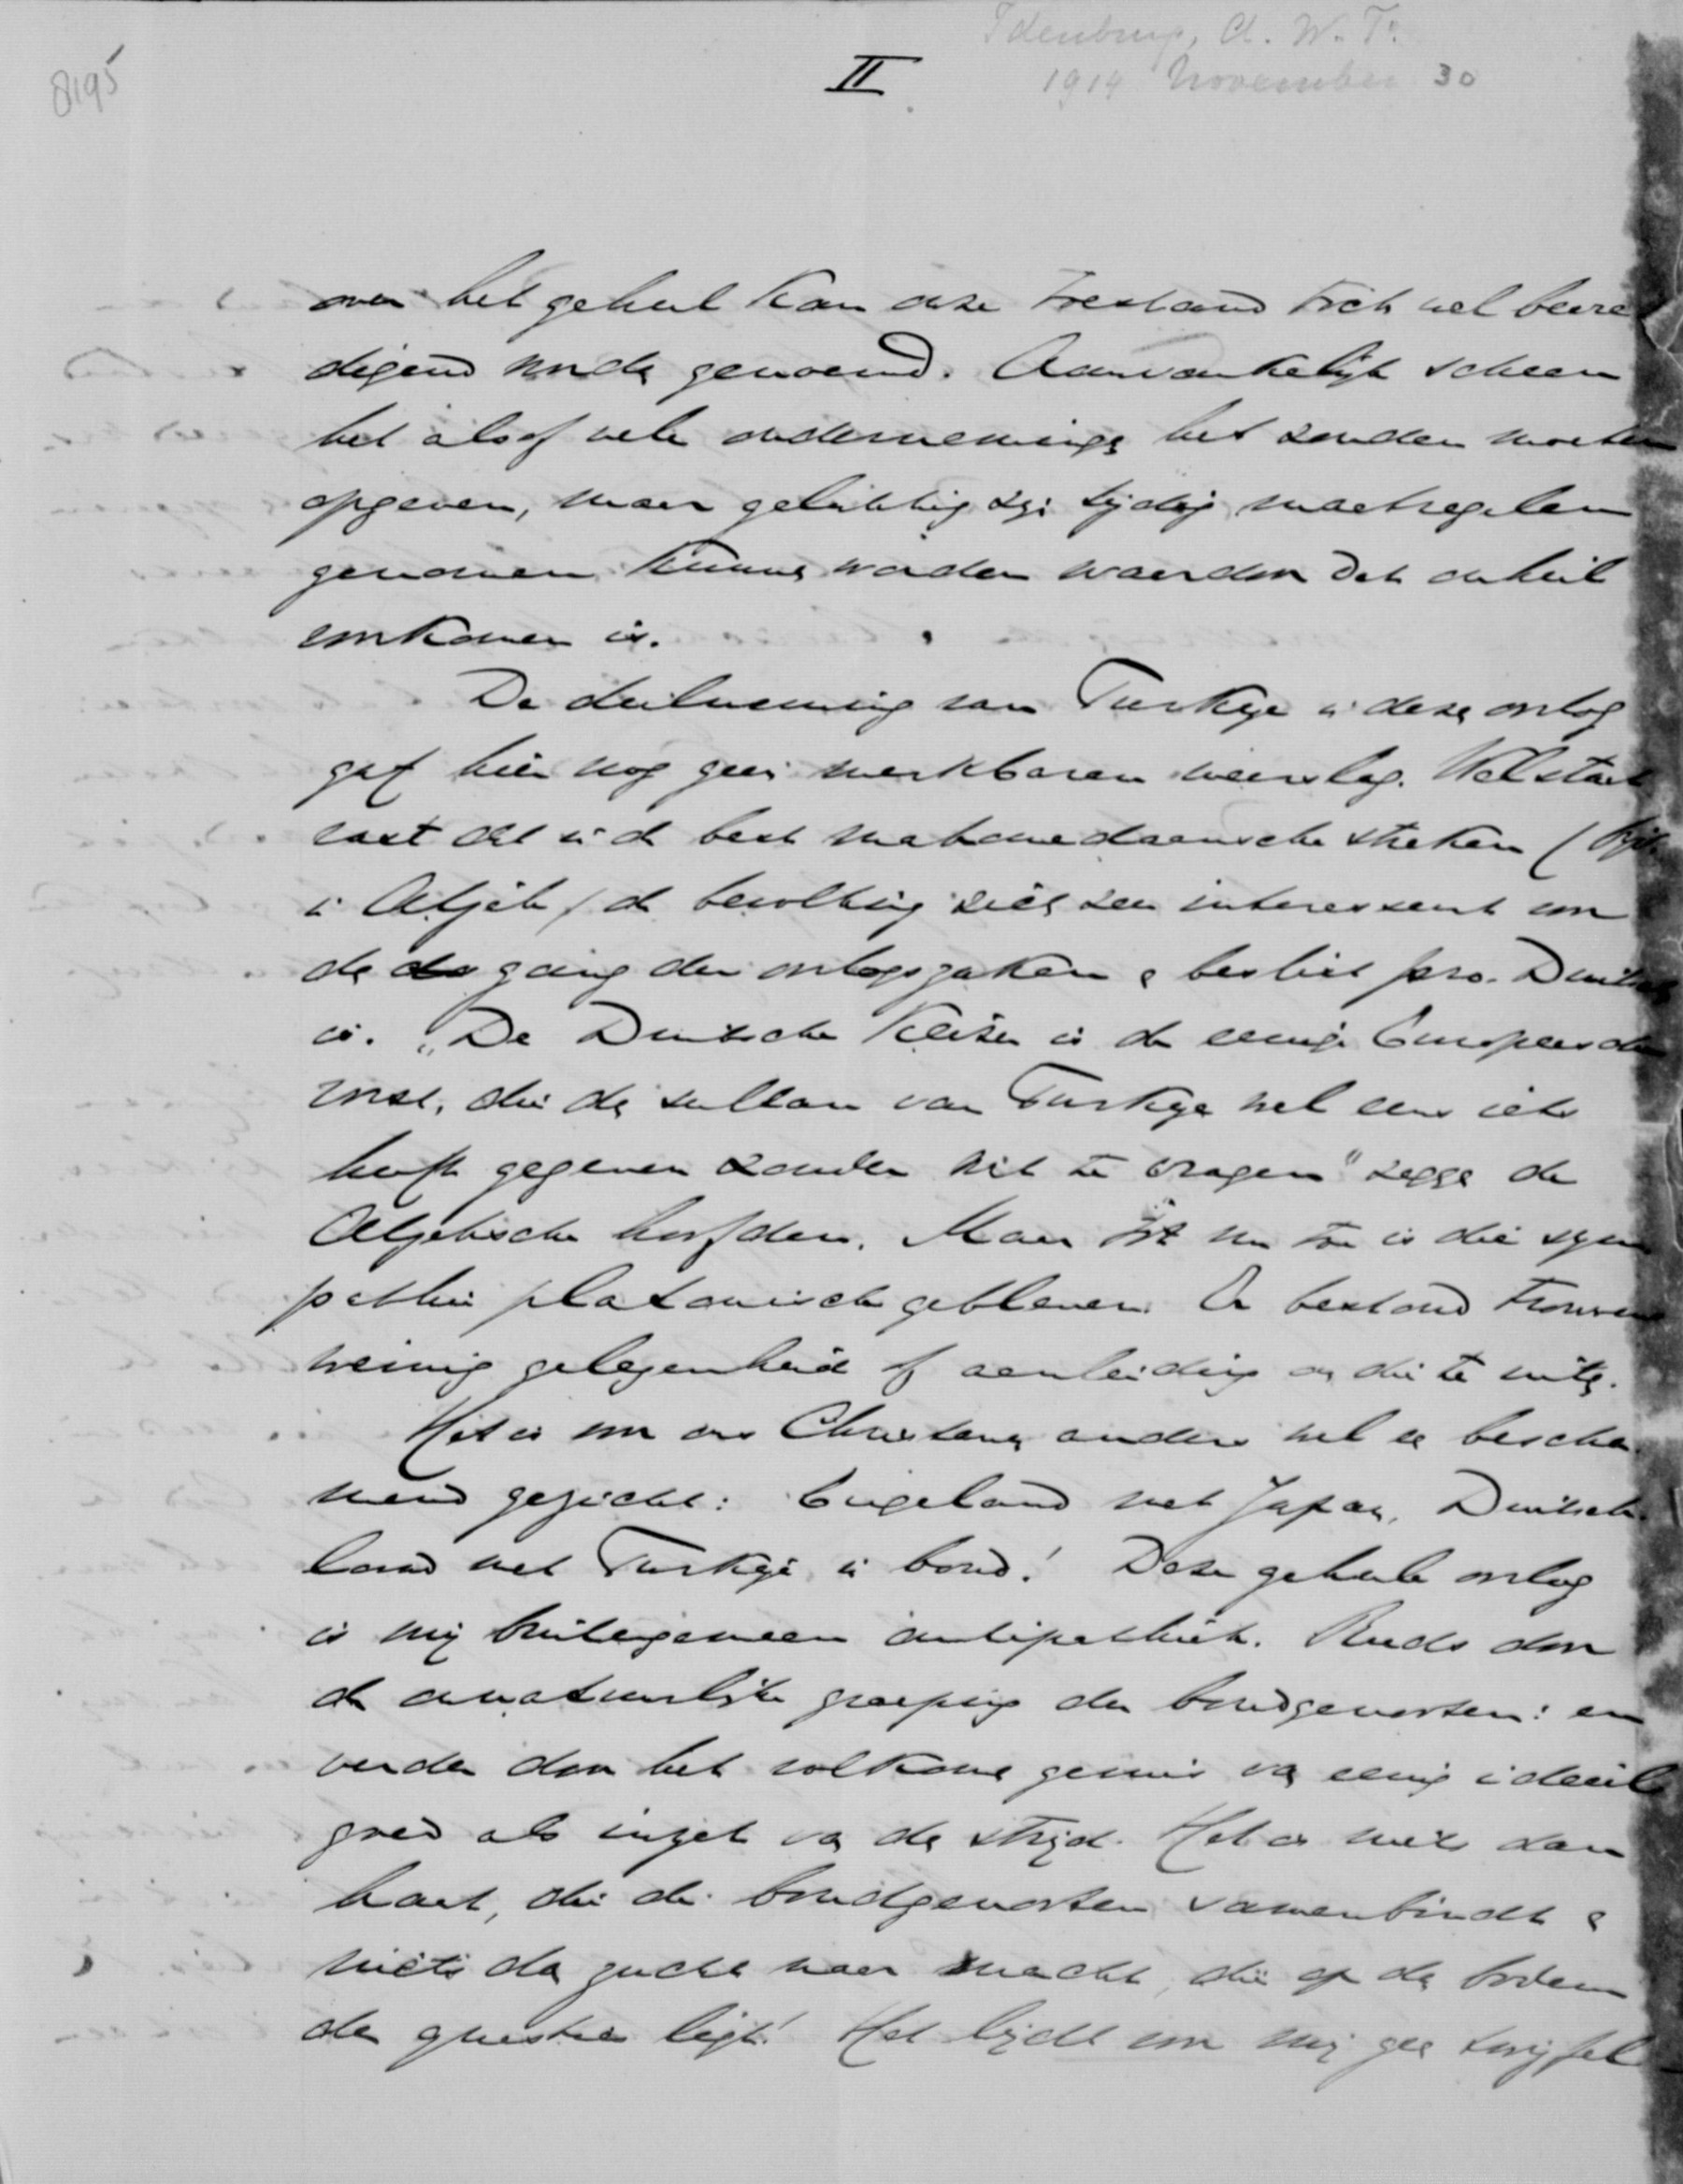 Idenburg, A. W. F.
1914 November 30
8195
II
over het geheel kan deze toestand toch wel bevre
digend worden genoemd. Aanvankelijk scheen
het alsof vele ondernemingen het zouden moeten
opgeven, maar gelukkig zijn tijdig maatregelen
genomen kunnen worden waardoor dat onheil
voorkomen is.
De deelneming van Turkije in dezen oorlog
gaf hier nog geen merkbaren weerslag. Wel staat
vast dat in de best mahomedaansche streken (bijv.
in Atjeh) de bevolking zich zeer interesseert voor
de gang der oorlogszaken en beslist pro-Duitsch
is. "De Duitsche Keizer is de eenige Europeesche
vorst, die den sultan van Turkije wel eens iets
heeft gegeven zonder iets te vragen" zeggen de
Atjehsche hoofden. Maar tot nu toe is die sym
pathie platonisch gebleven. Er bestond trouwens
weinig gelegenheid of aanleiding om die te uiten.
Het is voor ons Christenen anders wel een bescha-
mend gezicht: Engeland met Japan, Duitsch-
land met Turkije in bond! Deze geheele oorlog
is mij buitengemeen antipathiek. Reeds door
de onnatuurlijke groepeering der bondgenooten: en
verder door het volkomen gemis van eenig ideëel
goed als inzet van den strijd. Het is niets dan
haat, die de bondgenooten samenbindt en
niets dan zucht naar macht, die op den bodem
der questie ligt! Het lijdt voor mij geen twijfel